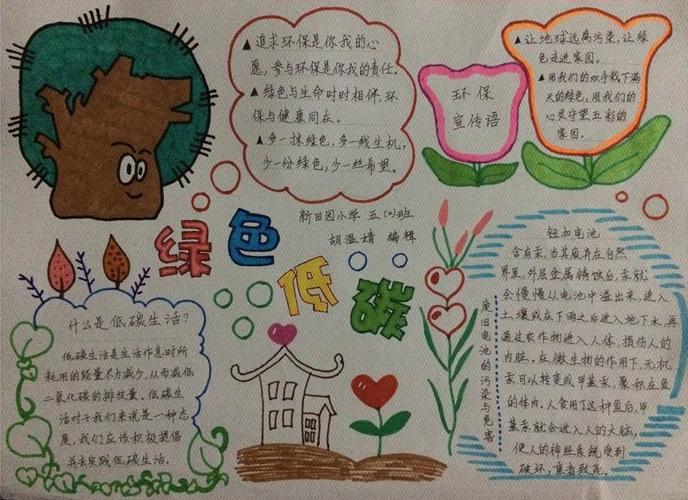 ▲追求环保是你我的心
愿,参与环保是你我的责任。
▲绿色与生命时时相伴,环
保与健康同在。
▲多一抹绿色,多一线生机,
少一份绿色,少一丝希望。
环保
宣传语
▲让地球远离污染,让绿
色走进家园。
▲用我们的双手栽下满
天的绿色,用我们的
心灵守望五彩的
家园。
新田园小学 五(2)班
胡温婧 编辑
绿色
低碳
什么是低碳生活?
低碳生活是生活作息时所
耗用的能量尽力减少,从而减低
二氧化碳的排放量,低碳生
活对于我们来说是一种态
度,我们应该积极提倡
并去实践低碳生活。
废旧电池的污染与危害
钮扣电池
含有汞,当其废弃在自然
界里,外层金属锈蚀后,汞就
会慢慢从电池中溢出来,进入
土壤或在下雨之后进入地下水,再
通过农作物进入人体,损伤人的
内脏。在微生物的作用下,无机
汞可以转变成甲基汞,聚积在鱼
的体内。人食用了这种鱼后,甲
基汞就会进入人的大脑,
使人的神经系统受到
破坏,重者致死。